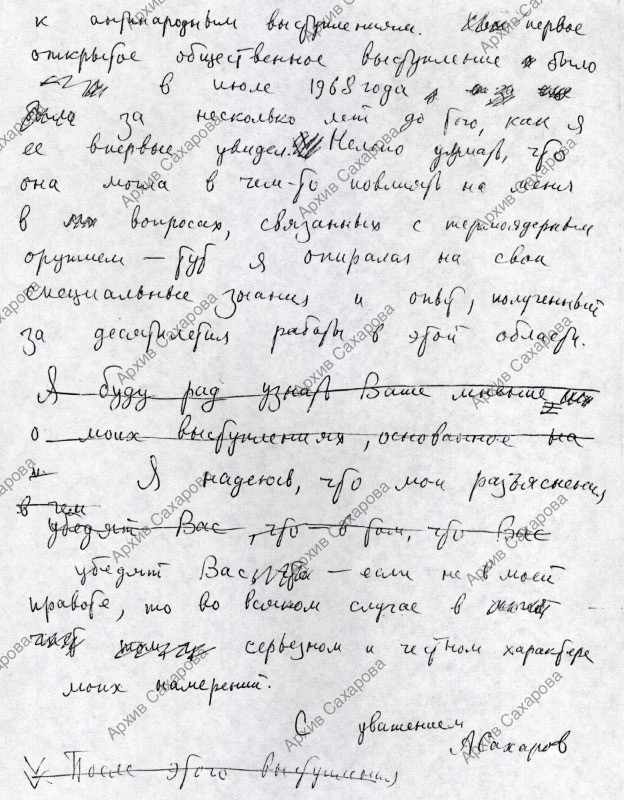 к антинародным выступлениям. Моё первое
открытое общественное выступление было
в июле 1968 года
было за несколько лет до того, как я
ее впервые увидел. Нелепо думать, что
она могла в чем-то повлиять на меня
в вопросах, связанных с термоядерным
оружием — тут я опирался на свои
специальные знания и опыт, полученный
за десятилетия работы в этой области.
Я буду рад узнать Ваше мнение
о моих выступлениях, основанное на
Я надеюсь, что мои разъяснения
в чем
убедят Вас, что в том, что Вас
убедят Вас — если не в моей
правоте, то во всяком случае в
серьезном и честном характере
моих намерений.
С уважением
АСахаров
V После этого выступления
Архив Сахарова